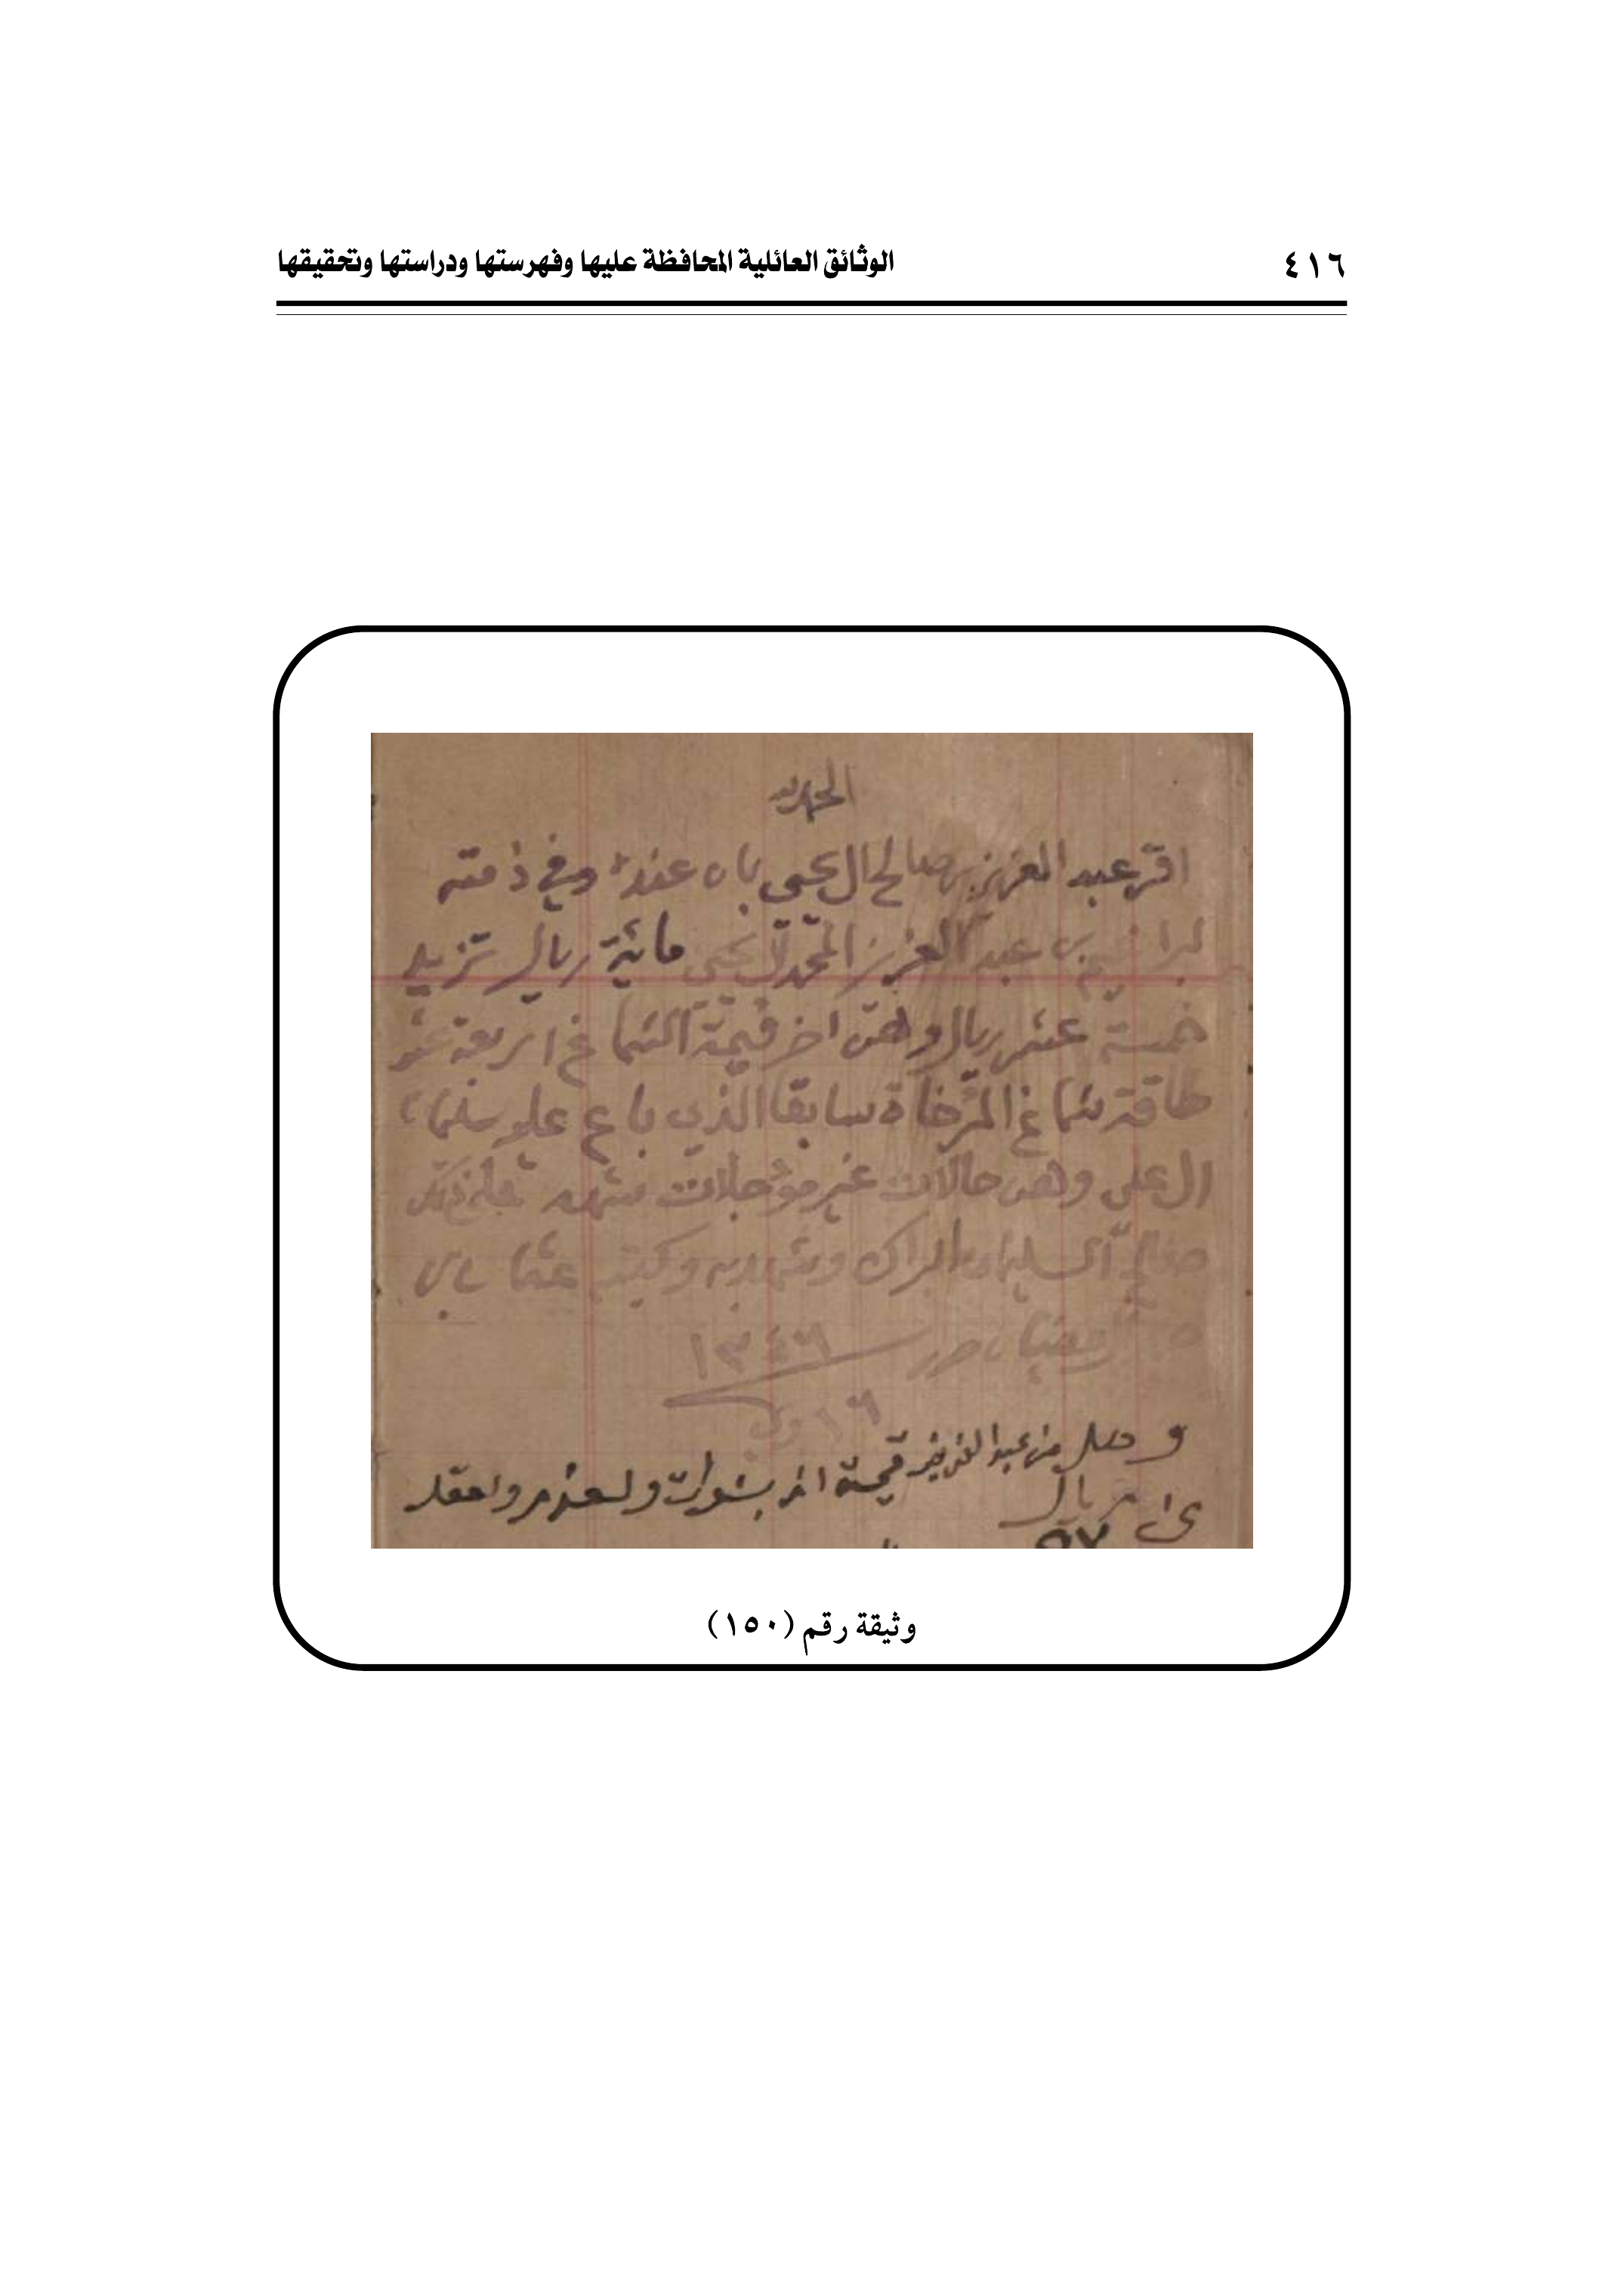 ٤١٦
الوثائق العائلية المحافظة عليها وفهرستها ودراستها وتحقيقها
الحمد لله
اقر عبد العزيز بن صالح ال يحيى بان عنده وفي ذمته
لبراهيم بن عبد العزيز المحمد ال يحيى مائة ريال تزيد
خمسة عشر ريال وهن اخر قيمة الشماغ اربعة عشر
طاقة شماغ المرخاة سابقا الذي باع علي سليمان
ال علي وهن حالات غير مؤجلات شهد على ذلك
صالح السليمان المبارك وشهد به وكتبه عثمان بن
رمضان ١٣٤٦
وصل من عبد العزيز قيمة اخر
ريال
٩٧
وثيقة رقم (١٥٠)